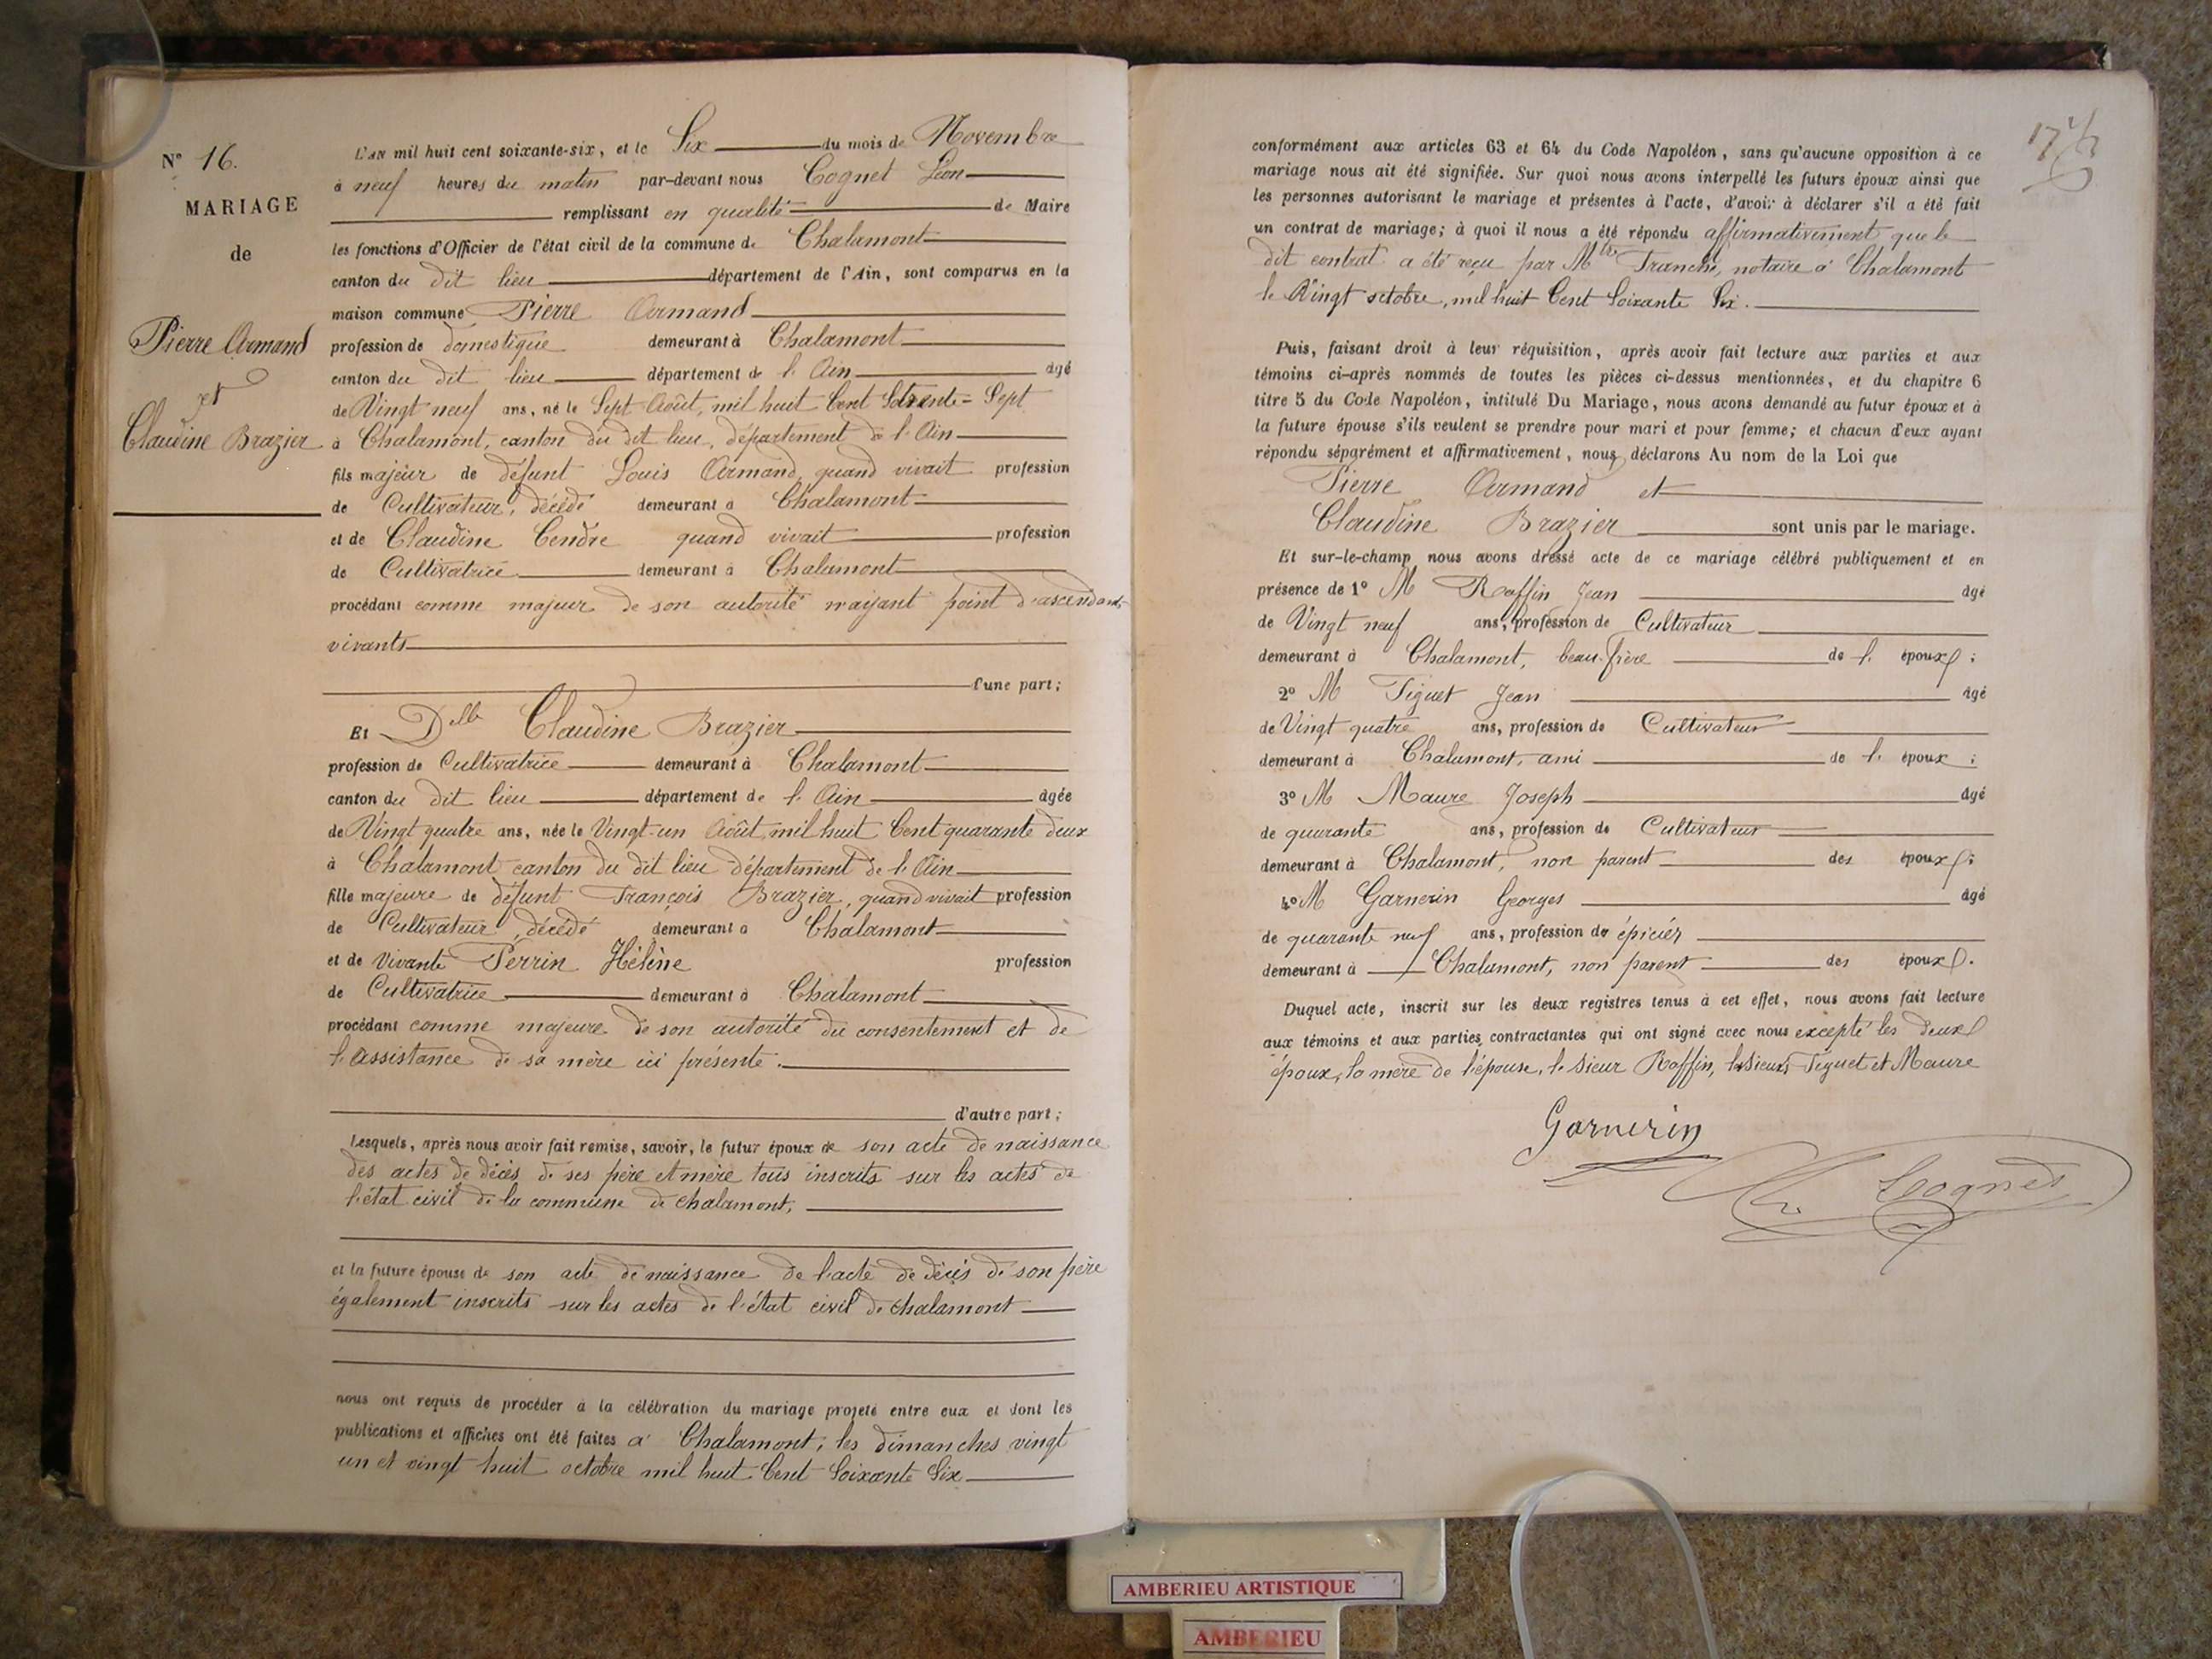 N° 16.
MARIAGE
de
Pierre Armand
et
Claudine Brazier
L'AN mil huit cent soixante-six, et le Six du mois de Novembre
à neuf heures du matin par-devant nous Cognet Léon
remplissant en qualité de Maire
les fonctions d'Officier de l'état civil de la commune de Chalamont
canton du dit lieu département de l'Ain, sont comparus en la
maison commune Pierre Armand
profession de domestique demeurant à Chalamont
canton du dit lieu département de l'Ain âgé
de Vingt neuf ans, né le Sept Août, mil huit Cent Trente-Sept
à Chalamont, canton du dit lieu, département de l'Ain
fils majeur de défunt Louis Armand, quand vivait profession
de Cultivateur, décédé demeurant à Chalamont
et de Claudine Cendre quand vivait profession
de Cultivatrice demeurant à Chalamont
procédant comme majeur de son autorité n'ayant point d'ascendants
vivants
d'une part;
Et Delle Claudine Brazier
profession de Cultivatrice demeurant à Chalamont
canton du dit lieu département de l'Ain âgée
de Vingt quatre ans, née le Vingt-un Août, mil huit Cent quarante deux
à Chalamont canton du dit lieu département de l'Ain
fille majeure de défunt François Brazier, quand vivait profession
de Cultivateur, décédé demeurant à Chalamont
et de vivante Perrin Hélène profession
de Cultivatrice demeurant à Chalamont
procédant comme majeure de son autorité du consentement et de
l'assistance de sa mère ici présente.
d'autre part;
Lesquels, après nous avoir fait remise, savoir, le futur époux de son acte de naissance
des actes de décès de ses père et mère tous inscrits sur les actes de
l'état civil de la commune de Chalamont,
et la future épouse de son acte de naissance de l'acte de décès de son père
également inscrits sur les actes de l'état civil de Chalamont
nous ont requis de procéder à la célébration du mariage projeté entre eux et dont les
publications et affiches ont été faites à Chalamont, les dimanches vingt
un et vingt huit octobre mil huit Cent Soixante Six
conformément aux articles 63 et 64 du Code Napoléon, sans qu'aucune opposition à ce
mariage nous ait été signifiée. Sur quoi nous avons interpellé les futurs époux ainsi que
les personnes autorisant le mariage et présentes à l'acte, d'avoir à déclarer s'il a été fait
un contrat de mariage; à quoi il nous a été répondu affirmativement que le
dit contrat a été reçu par Mtre Franchi, notaire à Chalamont
le Vingt octobre, mil huit Cent Soixante Six.
Puis, faisant droit à leur réquisition, après avoir fait lecture aux parties et aux
témoins ci-après nommés de toutes les pièces ci-dessus mentionnées, et du chapitre 6
titre 5 du Code Napoléon, intitulé Du Mariage, nous avons demandé au futur époux et à
la future épouse s'ils veulent se prendre pour mari et pour femme; et chacun d'eux ayant
répondu séparément et affirmativement, nous déclarons Au nom de la Loi que
Pierre Armand et
Claudine Brazier sont unis par le mariage.
Et sur-le-champ nous avons dressé acte de ce mariage célébré publiquement et en
présence de 1° M Raffin Jean âgé
de Vingt neuf ans, profession de Cultivateur
demeurant à Chalamont, beau-frère de l' époux;
2° M Tiguet Jean âgé
de Vingt quatre ans, profession de Cultivateur
demeurant à Chalamont, ami de l' époux;
3° M Maure Joseph âgé
de quarante ans, profession de Cultivateur
demeurant à Chalamont, non parent des époux;
4° M Garnerin Georges âgé
de quarante neuf ans, profession de épicier
demeurant à Chalamont, non parent des époux.
Duquel acte, inscrit sur les deux registres tenus à cet effet, nous avons fait lecture
aux témoins et aux parties contractantes qui ont signé avec nous excepté les deux
époux, la mère de l'épouse, le sieur Raffin, les sieurs Tiguet et Maure
Garnerin
Cognet
AMBERIEU ARTISTIQUE
AMBERIEU